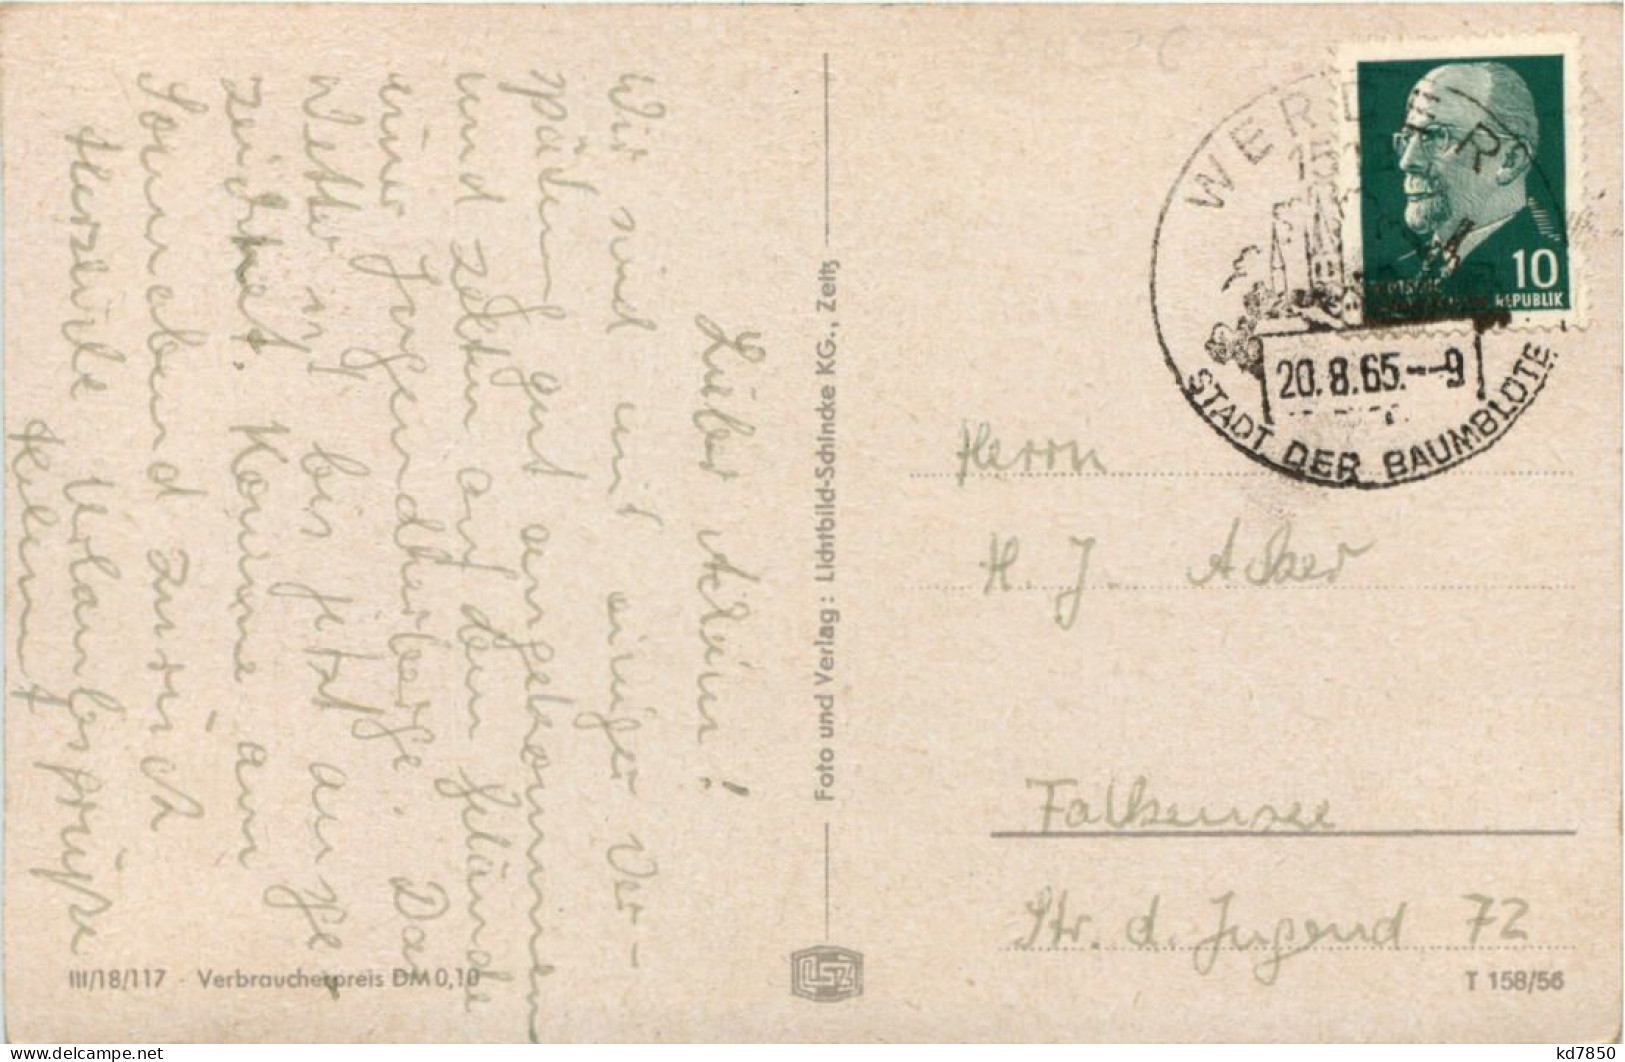 Lieber Achim!
Wir sind mit einiger Ver-
spätung gut angekommen
und zelten auf dem Gelände
einer Jugendherberge. Das
Wetter ist bis jetzt ausge-
zeichnet. Komme am
Sonnabend zurück
Herzliche Urlaubsgrüße
Foto und Verlag: Lichtbild-Schincke KG., Zeitz
III/18/117 · Verbraucherpreis DM 0,10
WERDER
10
DEUTSCHE
REPUBLIK
20.8.65.--9
STADT DER BAUMBLÜTE
Herrn
H. J. Acker
Falkensee
Str. d. Jugend 72
T 158/56
kd7850